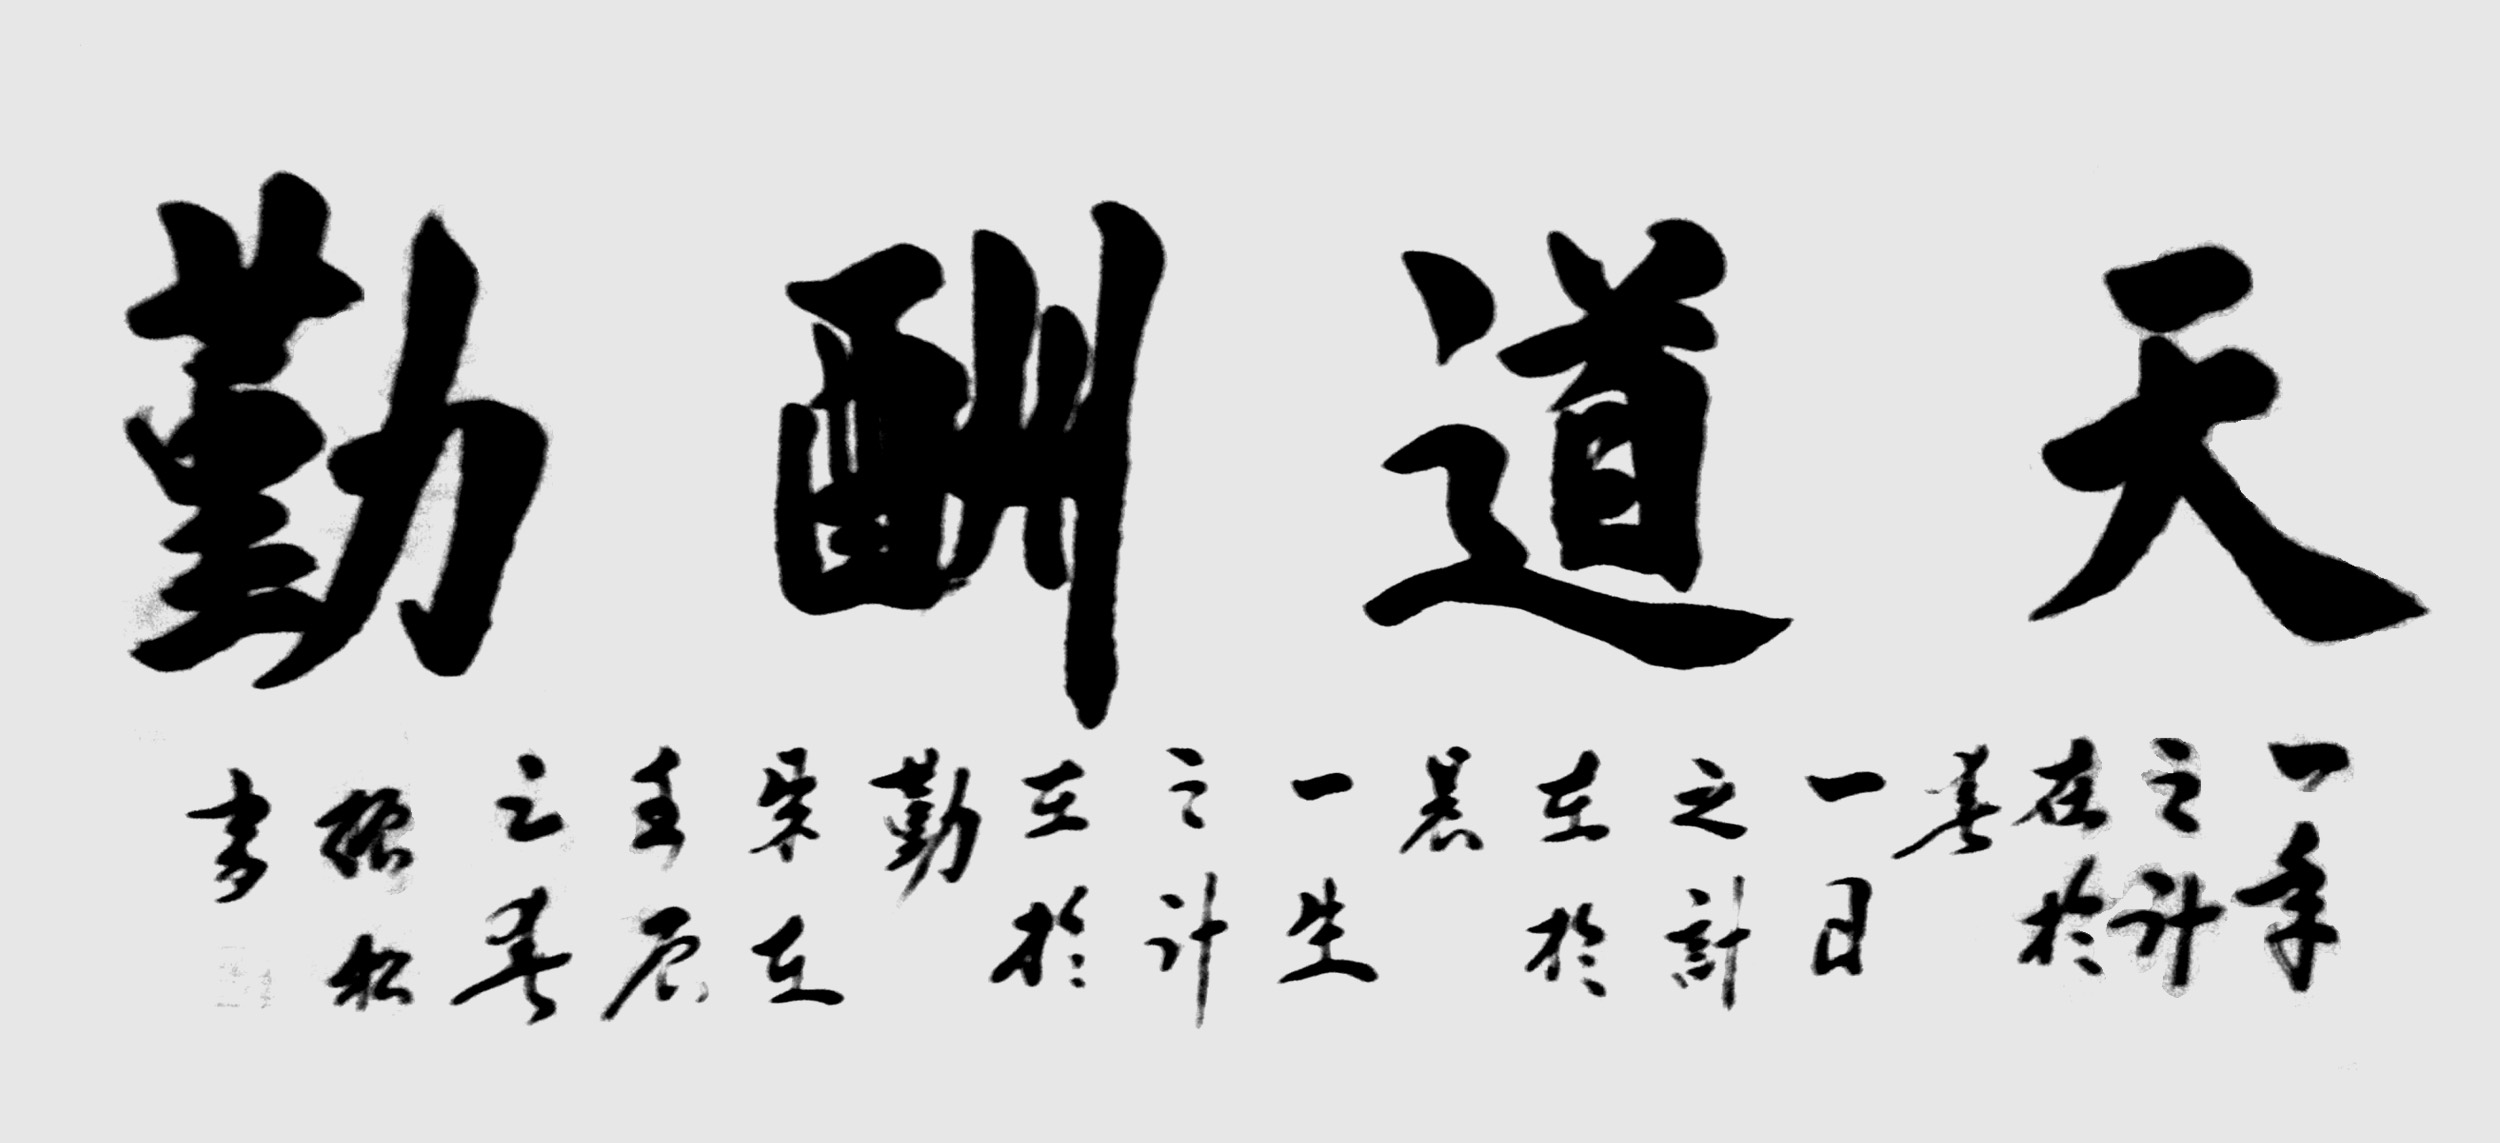 天道酬勤
一年
之計
在於
春
一日
之計
在於
晨
一生
之計
在於
勤
歲在
壬辰
之春
振松
書